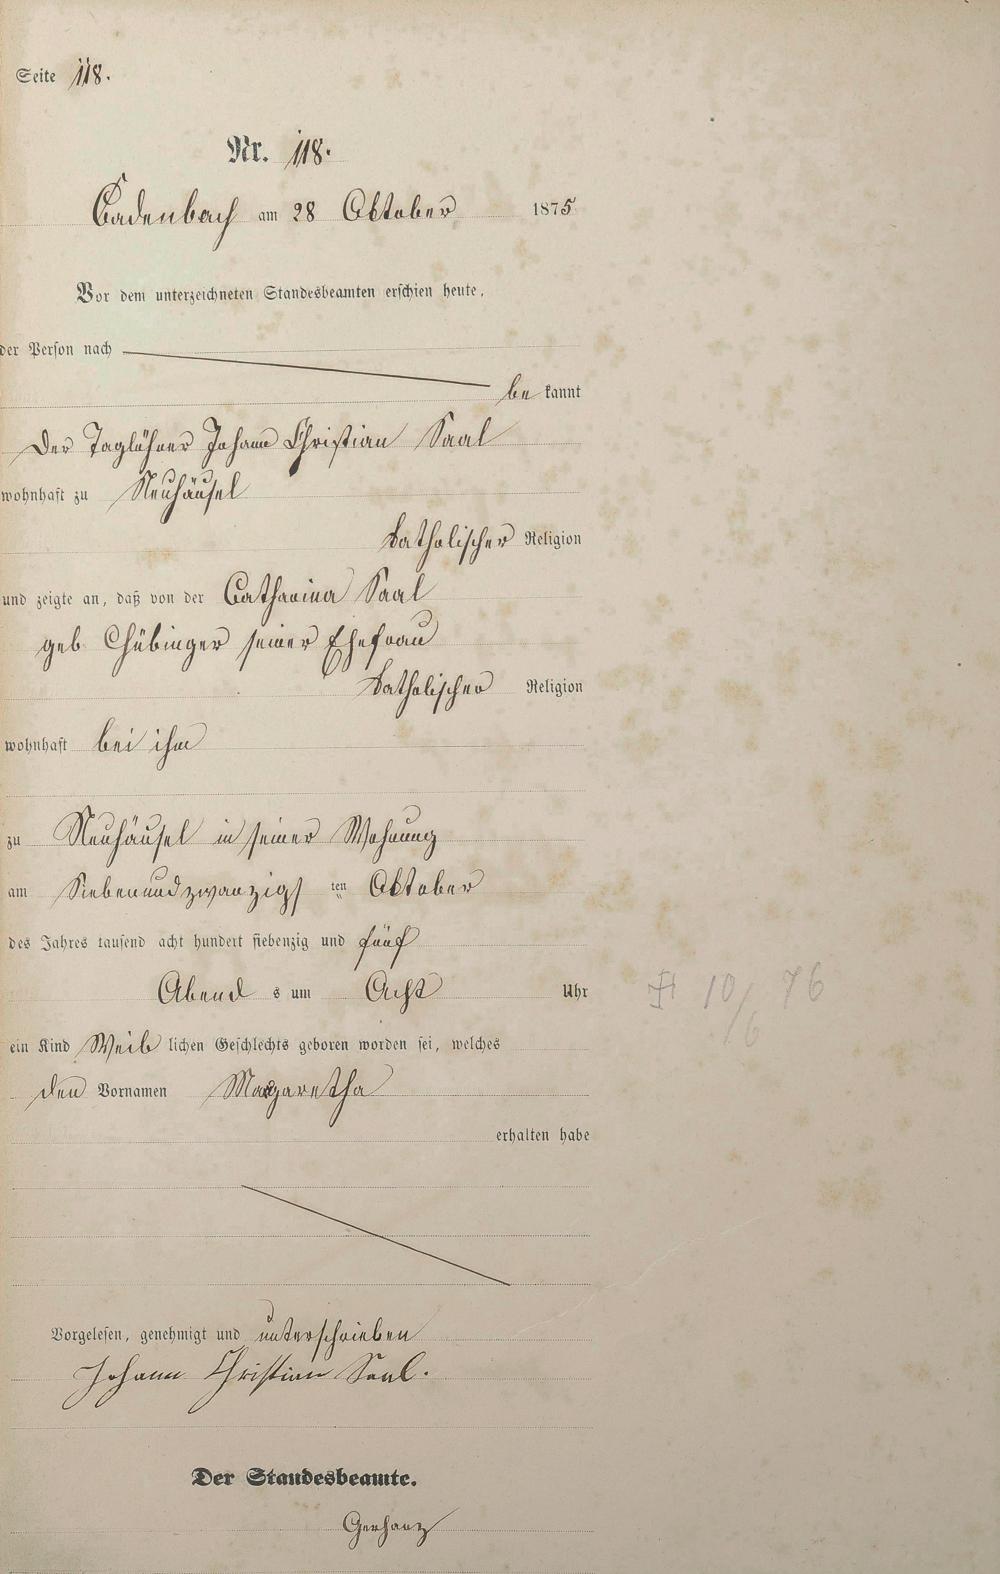 Seite 118.
Nr. 118.
Cadenbach am 28 Oktober 1875
Vor dem unterzeichneten Standesbeamten erschien heute,
der Person nach
be kannt
der Taglöhner Johann Christian Saal
wohnhaft zu Neuhäusel
katholischer Religion
und zeigte an, daß von der Catharina Saal
geb Chübinger seiner Ehefrau
katholischer Religion
wohnhaft bei ihm
zu Neuhäusel in seiner Wohnung
am Siebenundzwanzigs ten Oktober
des Jahres tausend acht hundert siebenzig und fünf
Abend s um Acht Uhr
ein Kind Weib lichen Geschlechts geboren worden sei, welches
den Vornamen Margaretha
erhalten habe
Vorgelesen, genehmigt und unterschrieben
Johann Christian Saal.
Der Standesbeamte.
Gerhanz
10/6 76